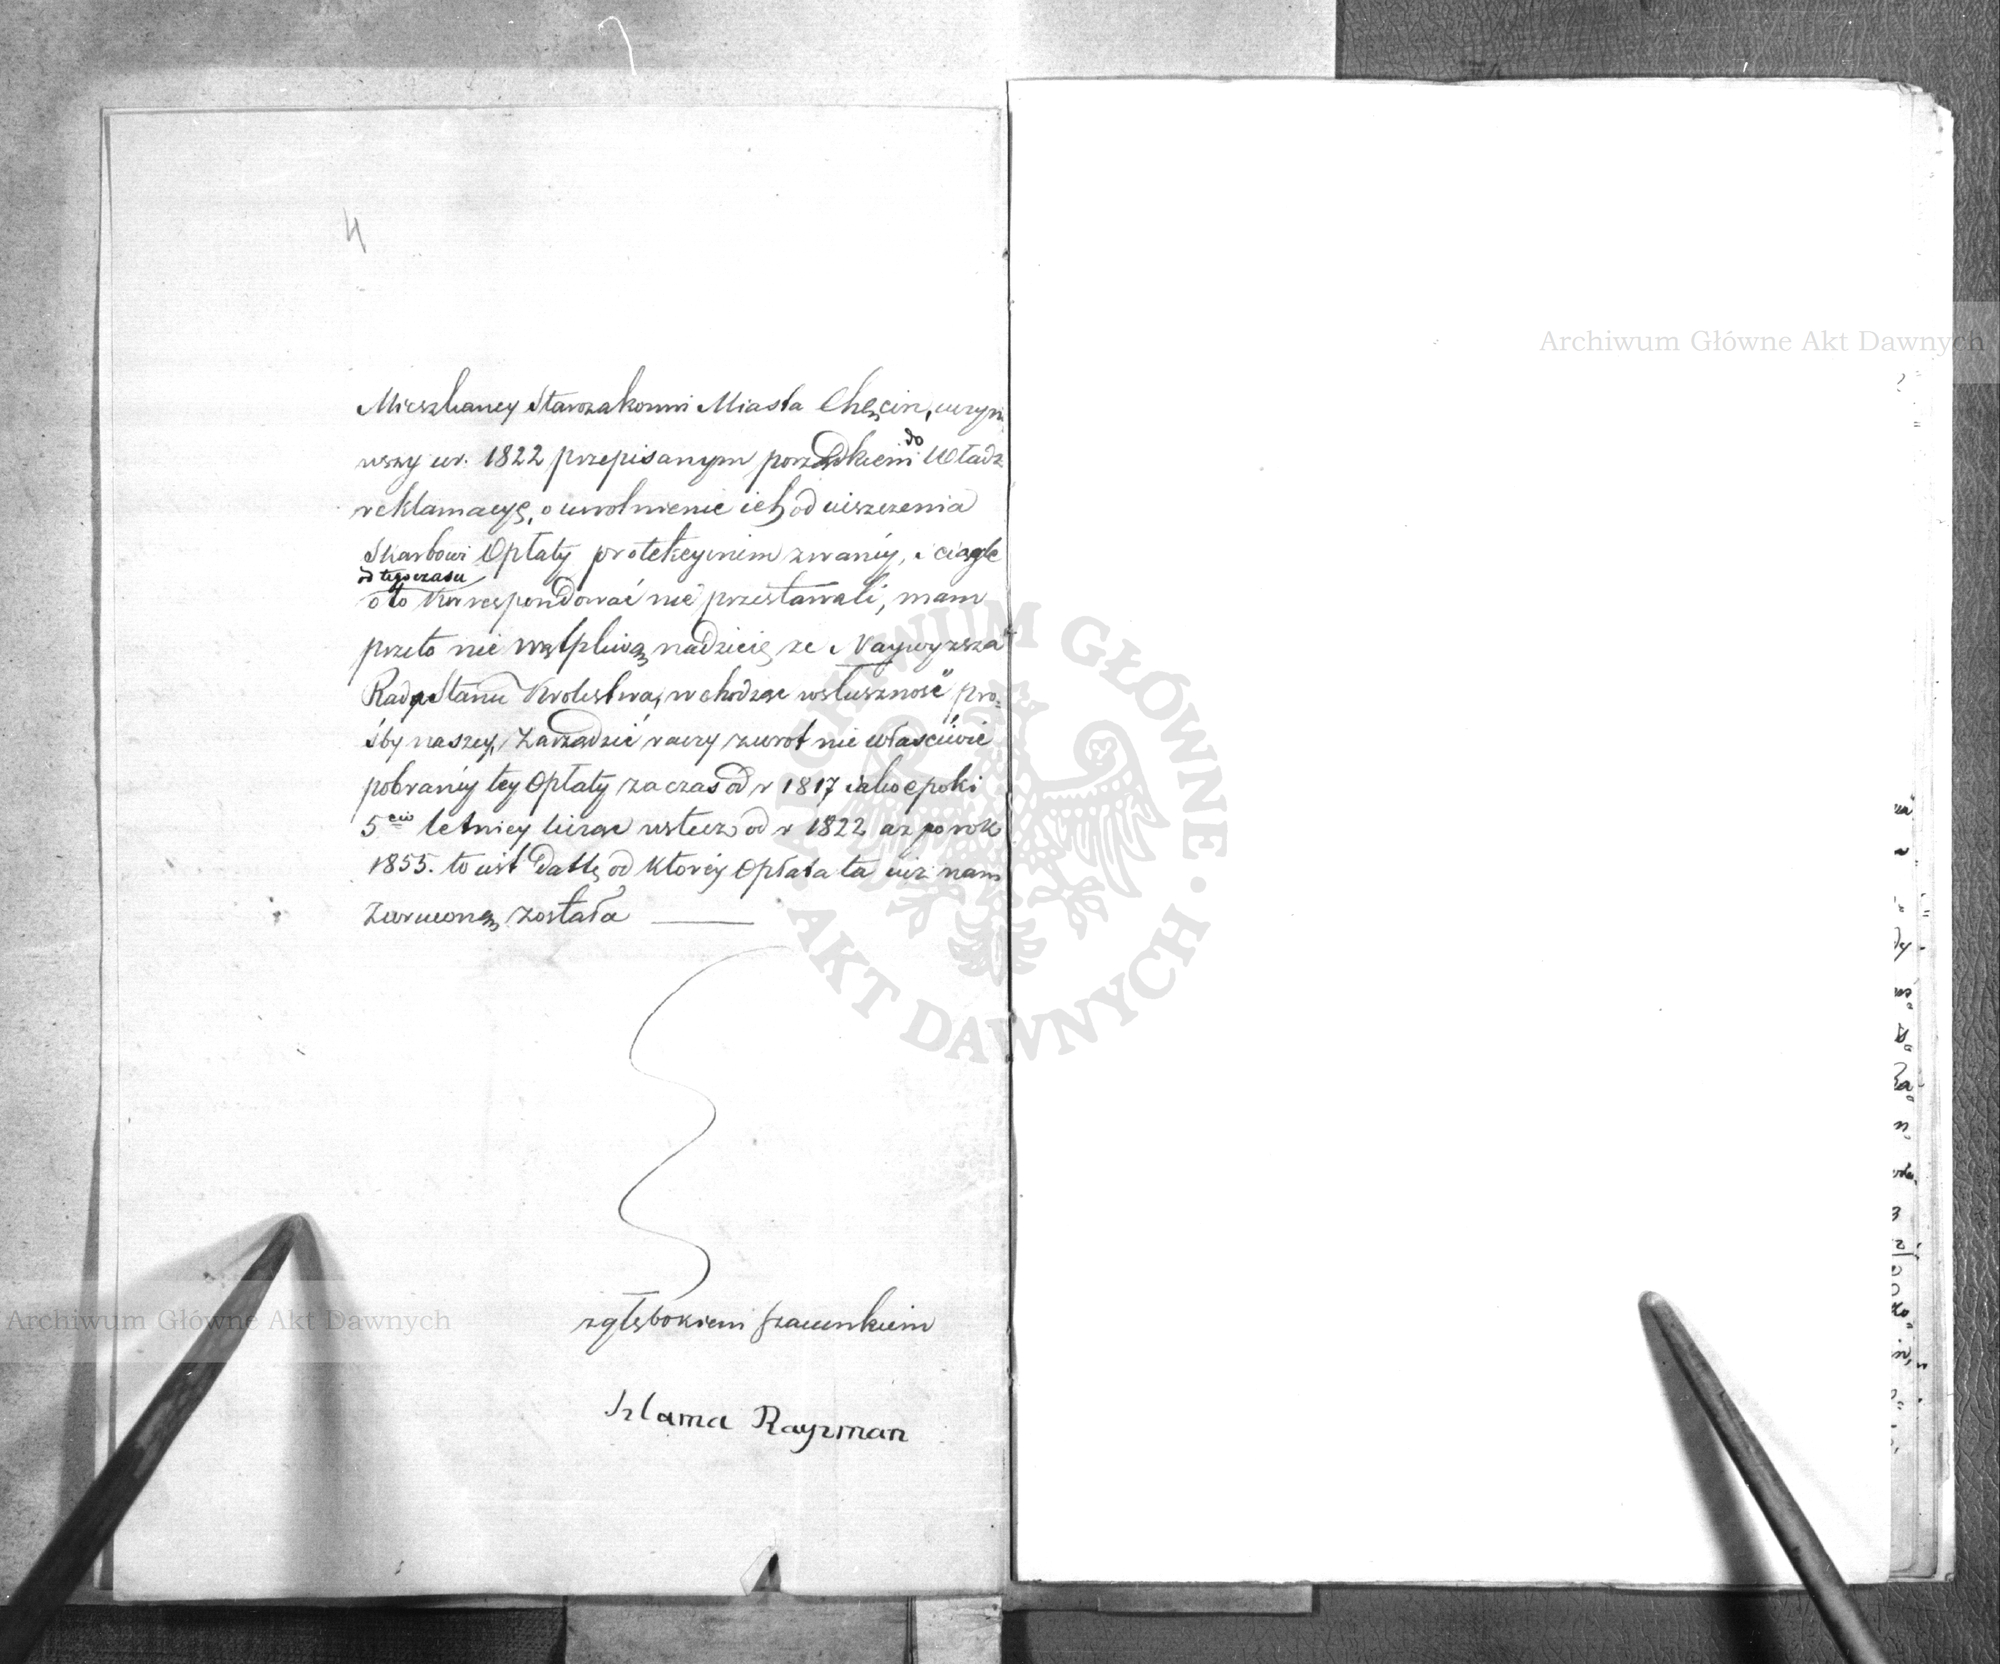 4
Mieszkancy Starozakonni Miasta Chęcin, uczyni
wszy w r. 1822 przepisanym porządkiem do Władz
reklamacyę, o uwolnienie ich od uiszczenia
Skarbowi Opłaty protekcyinem zwaney, i ciągle
od tego czasu
o to Korrespondować nie przestawali, mam
przeto nie wątpliwą nadzieię ze Naywyzsza
Rada Stanu Krolestwa, wchodząc w słuszność pro-
śby naszey, Zarządzić raczy zwrot nie właściwie
pobraney tey Opłaty za czas od r 1817 iako epoki
5cio letniey licząc wstecz od r 1822 az po rok
1855. to iest Datę od którey Opłata ta iuz nam
Zwroconą została
z głębokiem szacunkiem
Szlama Rayzman
Archiwum Główne Akt Dawnych
Archiwum Główne Akt Dawnych
ARCHIWUM GŁÓWNE · AKT DAWNYCH ·